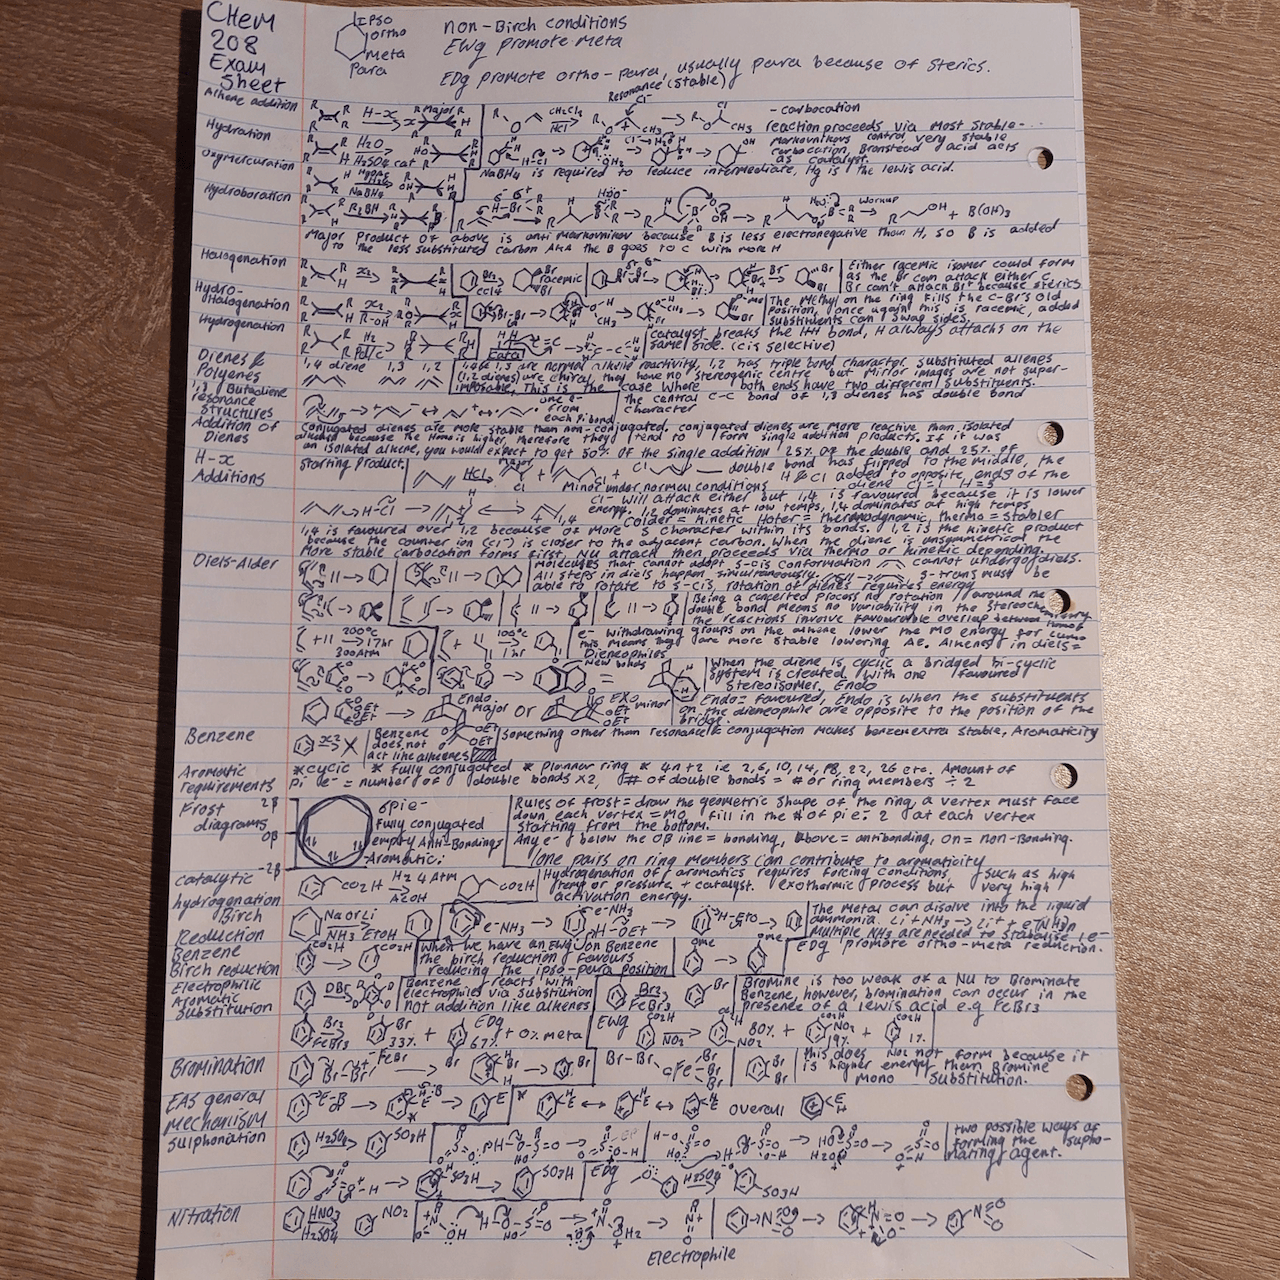 CHem
208
Exam
Sheet
Ipso
ortho
meta
Para
non-Birch conditions
EWg promote meta
EDg promote ortho-para, usually para because of sterics.
Resonance (stable)
Alkene addition
H-x
Major
CH2Cl2
HCl
- carbocation
reaction proceeds via most stable-...
Hydration
H2O
H2SO4 cat
Markovnikovs control very stable
carbocation, Bronstead acid acts
as catalyst.
Oxymercuration
NaBH4
NaBH4 is required to reduce intermediate, Hg is the lewis acid.
Hydroboration
R2BH
workup
+ B(OH)3
Major product of above is anti markovnikov because B is less electronegative than H, so B is added
to the less substituted carbon AKA the B goes to C with more H
Halogenation
x2
Br2
CCl4
racemic
Either racemic isomer could form
as the Br can attack either C,
Br can't attack Br+ because sterics
Hydro-
Halogenation
x2
R-OH
The Methyl on the ring kills the C-Br's old
position, once again this is racemic, added
substituents can swap sides.
Hydrogenation
H2
Pd/C
Cata
catalyst breaks the H-H bond, H always attachs on the
same side. (cis selective)
Dienes &
Polyenes
1,4 diene 1,3 1,2
1,4 & 1,3 are normal alkene reactivity, 1,2 has triple bond character. substituted allenes
(1,2 dienes) are chiral, they have no stereogenic centre but mirror images are not super-
imposable, This is the case where both ends have two different substituents.
1,3 Butadiene
resonance
structures
one e-
from
each pi bond
The central C-C bond of 1,3 dienes has double bond
character
Addition of
Dienes
Conjugated dienes are more stable than non-conjugated. conjugated dienes are more reactive than isolated
because the Homo is higher, therefore they tend to form single addition products. If it was
an isolated alkene, you would expect to get 50% of the single addition 25% of the double and 25% of
H-x
Additions
Starting product.
HCl
Major
Minor under normal conditions
double bond has flipped to the middle, the
H & Cl added to opposite ends of the
diene
Cl- will attack either but 1,4 is favoured because it is lower
energy. 1,2 dominates at low temps, 1,4 dominates at high temps
Colder = kinetic Hoter = thermodynamic, thermo = stabler
1,4 is favoured over 1,2 because of more S character within its bonds. 1,2 is the kinetic product
because the counter ion (Cl-) is closer to the adjacent carbon. When the diene is unsymmetrical the
more stable carbocation forms first, Nu attack then proceeds via thermo or kinetic depending.
Diels-Alder
Molecules that cannot adopt s-cis conformation cannot undergo diels.
All steps in diels happen simultaneously. s-trans must be
able to rotate to s-cis, rotation of dienes requires energy
Being a concerted process no rotation around the
double bond means no variability in the stereochemistry
the reactions involve favourable overlap between Homo
200°c
17hr
300Atm
100°c
1hr
e- withdrawing groups on the alkene lower the MO energy for lumo
this means they are more stable lowering ΔE. Alkenes in diels =
Dieneophiles
New bonds
When the diene is cyclic a bridged bi-cyclic
system is created, with one favoured
stereoisomer, Endo
Endo
Major
or
Exo
minor
OEt
Endo = favoured, Endo is when the substituents
on the dieneophile are opposite to the position of the
bridge.
Benzene
x2
Benzene
does not
act like alkenes
Something other than resonance & conjugation makes benzene extra stable, Aromaticity
Aromatic
requirements
*cyclic * fully conjugated * planner ring * 4n+2 i.e 2,6,10,14,18,22,26 etc. Amount of
Pi e- = number of double bonds x2, # of double bonds = # of ring members ÷ 2
Frost
diagrams
2β
0β
-2β
6pie-
Fully conjugated
empty Anti-Bondings
Aromatic:
Rules of frost = draw the geometric shape of the ring, a vertex must face
down, each vertex = MO fill in the # of pie: 2 at each vertex
starting from the bottom.
Any e- below the 0β line = bonding, above = antibonding, on = non-Bonding.
lone pairs on ring members can contribute to aromaticity
catalytic
hydrogenation
CO2H
H2 4 Atm
AcOH
CO2H
Hydrogenation of aromatics requires forcing conditions, such as high
temp or pressure + catalyst. exothermic process but very high
activation energy.
Birch
Reduction
Na or Li
NH3 EtOH
e-NH3
e-NH3
H-OEt
H-EtO
The metal can disolve into the liquid
ammonia. Li + NH3 → Li+ + e-(NH3)n
Multiple NH3 are needed to stabalise i.e-
Benzene
Birch reduction
CO2H
CO2H
When we have an EWg on Benzene
the birch reduction favours
reducing the ipso-para position
OMe
OMe
EDg promote ortho-meta reduction.
Electrophilic
Aromatic
Substitution
DBr
Benzene reacts with
electrophiles via substitution
not addition like alkenes
Br2
FeBr3
Br
Bromine is too weak of a Nu to Brominate
Benzene, however, bromination can occur in the
presence of a lewis acid e.g FeBr3
Br2
FeBr3
Br
33%
+
EDg
67%
+ 0% meta
EWg
CO2H
NO2
CO2H
NO2
80% +
CO2H
NO2
19% +
CO2H
NO2
1%
Bromination
Br-Br
FeBr
Br
Br
Br-Br
Fe-Br
Br
Br
this does not form because it
is higher energy then Bromine
mono substitution.
EAS general
mechanism
E-B
E
overall
sulphonation
H2SO4
SO3H
two possible ways of
forming the supho-
nating agent.
SO3H
SO3H
EDg
H2SO4
SO3H
Nitration
HNO3
H2SO4
NO2
Electrophile